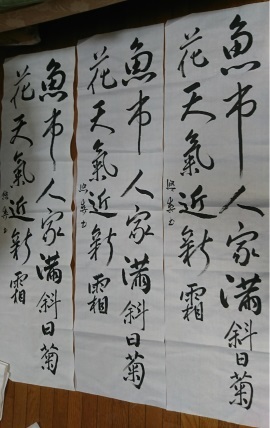 魚市人家滿斜日菊
花天氣近新霜
魚市人家滿斜日菊
花天氣近新霜
魚市人家滿斜日菊
花天氣近新霜